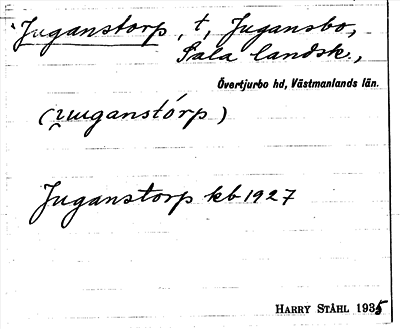 Juganstorp, t, Jugansbo,
Sala landsk.,
Övertjurbo hd, Västmanlands län.
Juganstorp kb 1927
HARRY STÅHL 1935